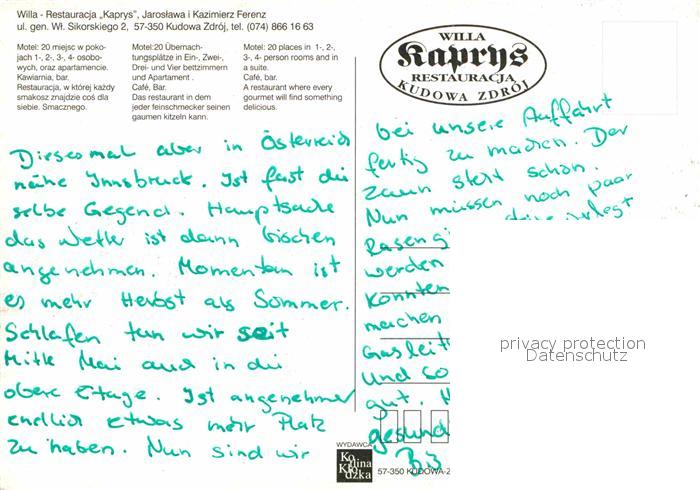 Willa - Restauracja „Kaprys”, Jarosława i Kazimierz Ferenz
ul. gen. Wł. Sikorskiego 2, 57-350 Kudowa Zdrój, tel. (074) 866 16 63
Motel: 20 miejsc w poko-
jach 1-, 2-, 3-, 4- osobo-
wych, oraz apartamencie.
Kawiarnia, bar.
Restauracja, w której każdy
smakosz znajdzie coś dla
siebie. Smacznego.
Motel:20 Übernach-
tungsplätze in Ein-, Zwei-,
Drei- und Vier bettzimmern
und Apartment .
Café, Bar.
Das restaurant in dem
jeder feinschmecker seinen
gaumen kitzeln kann.
Motel: 20 places in 1-, 2-,
3-, 4- person rooms and in
a suite.
Café, bar.
A restaurant where every
gourmet will find something
delicious.
WILLA
Kaprys
RESTAURACJA
KUDOWA ZDRÓJ
Diesesmal aber in Österreich
nähe Innsbruck. Ist fast die
selbe Gegend. Hauptsache
das Wetter ist dann bischen
angenehmen. Momentan ist
es mehr Herbst als Sommer.
Schlafen tun wir seit
Mitte Mai auch in die
obere Etage. Ist angenehmer
endlich etwas mehr Platz
zu haben. Nun sind wir
bei unsere Auffahrt
fertig zu machen. Der
Zaun steht schon.
Nun müssen noch paar
Raseng
werden
Konnten
machen
Gasleit
und so
gut.
gesund
privacy protection
Datenschutz
WYDAWCA
Kolina
Kłodzka
57-350 KUDOWA-Z